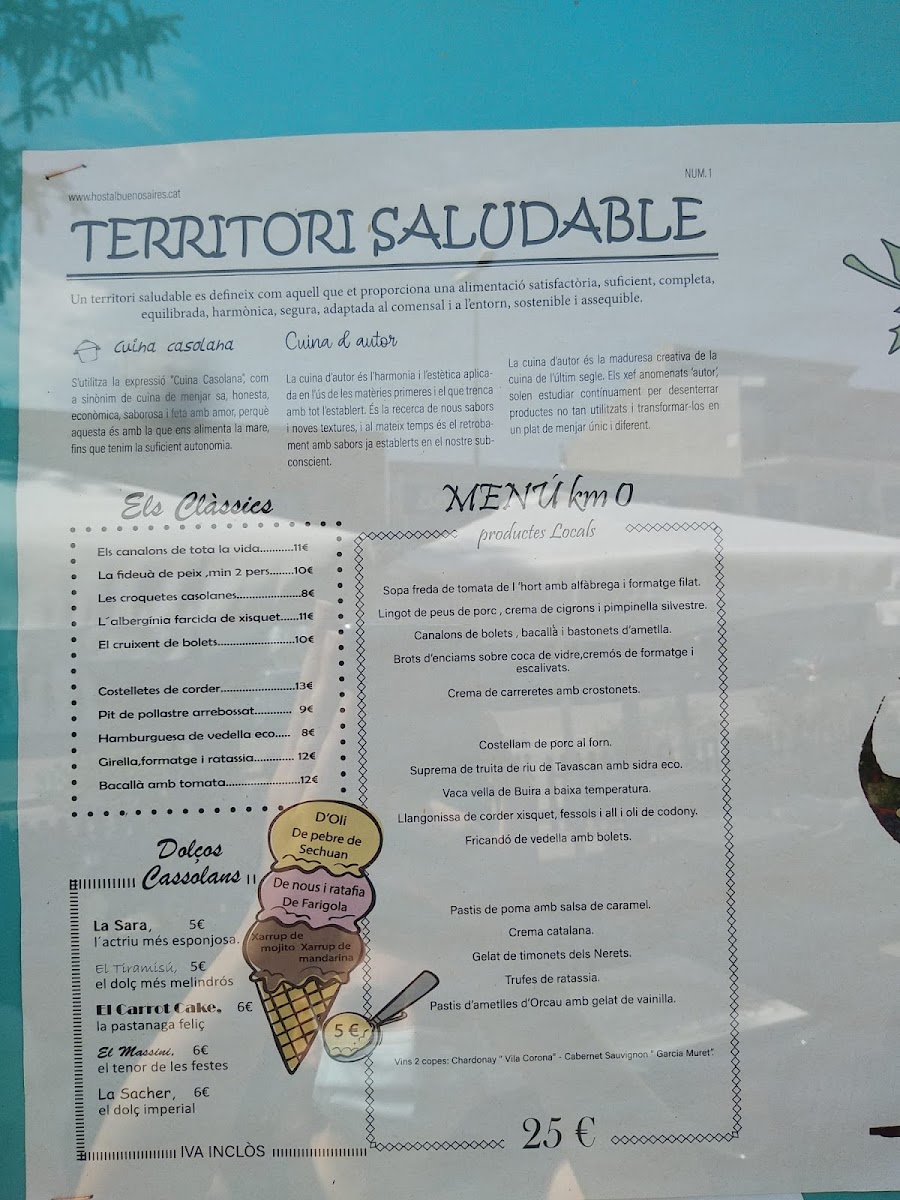 www.hostalbuenosaires.cat
NUM.1
TERRITORI SALUDABLE
Un territori saludable es defineix com aquell que et proporciona una alimentació satisfactòria, suficient, completa,
equilibrada, harmònica, segura, adaptada al comensal i a l'entorn, sostenible i assequible.
cuina casolana
S'utilitza la expressió "Cuina Casolana", com
a sinònim de cuina de menjar sa, honesta,
econòmica, saborosa i feta amb amor, perquè
aquesta és amb la que ens alimenta la mare,
fins que tenim la suficient autonomia.
Cuina d autor
La cuina d'autor és l'harmonia i l'estètica aplica-
da en l'ús de les matèries primeres i el que trenca
amb tot l'establert. És la recerca de nous sabors
i noves textures, i al mateix temps és el retroba-
ment amb sabors ja establerts en el nostre sub-
conscient.
La cuina d'autor és la maduresa creativa de la
cuina de l'últim segle. Els xef anomenats 'autor',
solen estudiar contínuament per desenterrar
productes no tan utilitzats i transformar-los en
un plat de menjar únic i diferent.
Els Clàssics
Els canalons de tota la vida...........11€
La fideuà de peix ,min 2 pers........10€
Les croquetes casolanes.....................8€
L´albergínia farcida de xisquet......11€
El cruixent de bolets.........................10€
Costelletes de corder........................13€
Pit de pollastre arrebossat............ 9€
Hamburguesa de vedella eco..... 8€
Girella,formatge i ratassia............. 12€
Bacallà amb tomata........................12€
Dolços
Cassolans
La Sara, 5€
l´actriu més esponjosa.
El Tiramisú, 5€
el dolç més melindrós
El Carrot Cake, 6€
la pastanaga feliç
El Massini, 6€
el tenor de les festes
La Sacher, 6€
el dolç imperial
IVA INCLÒS
D'Oli
De pebre de
Sechuan
De nous i ratafia
De Farigola
Xarrup de
mojito Xarrup de
mandarina
5 €
MENÚ km 0
productes Locals
Sopa freda de tomata de l 'hort amb alfàbrega i formatge filat.
Lingot de peus de porc , crema de cigrons i pimpinella silvestre.
Canalons de bolets , bacallà i bastonets d'ametlla.
Brots d'enciams sobre coca de vidre,cremós de formatge i
escalivats.
Crema de carreretes amb crostonets.
Costellam de porc al forn.
Suprema de truita de riu de Tavascan amb sidra eco.
Vaca vella de Buira a baixa temperatura.
Llangonissa de corder xisquet, fessols i all i oli de codony.
Fricandó de vedella amb bolets.
Pastis de poma amb salsa de caramel.
Crema catalana.
Gelat de timonets dels Nerets.
Trufes de ratassia.
Pastis d'ametlles d'Orcau amb gelat de vainilla.
Vins 2 copes: Chardonay " Vila Corona" - Cabernet Sauvignon " Garcia Muret".
25 €